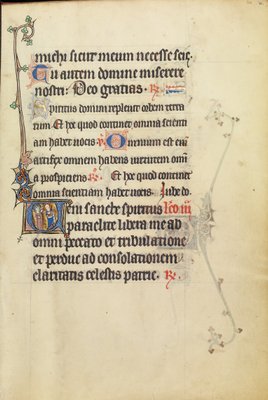 michi sicut meum necesse scie
Tu autem domine miserere
nostri: Deo gratias. R̷
Spiritus domini replevit orbem terra
rum Et hoc quod continet omnia scienti
am habet vocis. Omnium est eni
artifex omnem habens virtutem omi
a prospiciens R̷ Et hoc quod continet
omnia scientiam habet vocis. Jube do
Veni sancte spiritus Leo iii
paraclite libera me ab
omni peccato et tribulatione
et perduc ad consolationem
claritatis celestis patrie. R̷